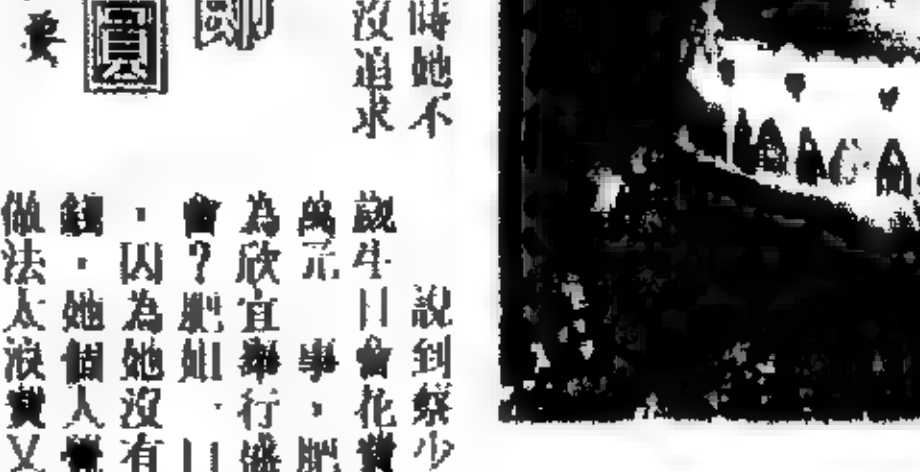 時她不
沒追求
圓
說到蔡少
歲生日會花費
萬元 事，肥
為欣宜舉行盛
會？肥姐
，因為她沒有
錢，她個人覺
做法太浪費又